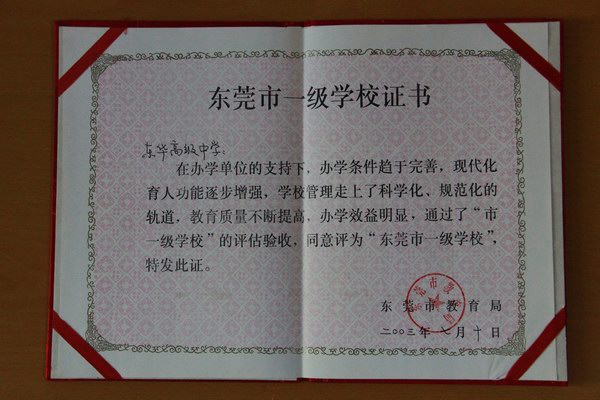 东莞市一级学校证书
东华高级中学：
在办学单位的支持下，办学条件趋于完善，现代化
育人功能逐步增强，学校管理走上了科学化、规范化的
轨道，教育质量不断提高，办学效益明显，通过了“市
一级学校”的评估验收，同意评为“东莞市一级学校”，
特发此证。
东莞市教育局
东莞市教育局
二〇〇三年七月十日